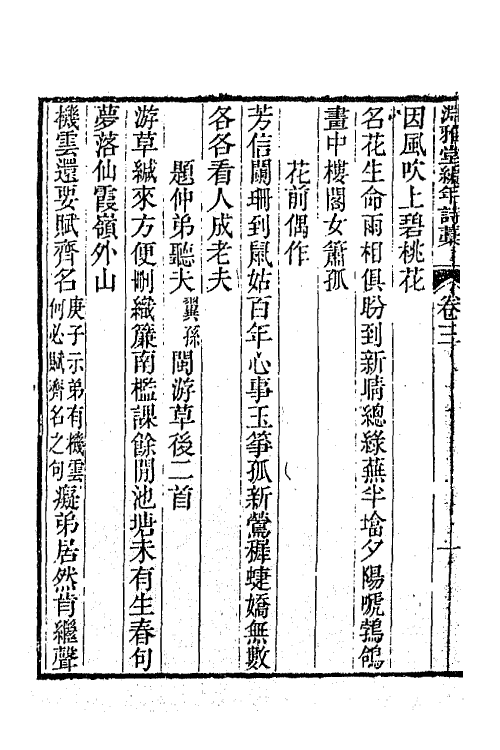 淵雅堂編年詩藁 卷三
因風吹上碧桃花
名花生命雨相俱盼到新晴總綠蕪半墖夕陽唬鵓鴿
畫中樓閣女簫孤
花前偶作
芳信闌珊到鼠姑百年心事玉箏孤新鶯穉蜨嬌無數
各各看人成老夫
題仲弟聽夫翼孫閩游草後二首
游草緘來方便刪織簾南檻課餘閒池塘未有生春句
夢落仙霞嶺外山
機雲還要賦齊名庚子示弟有機雲何必賦齊名之句癡弟居然肯繼聲